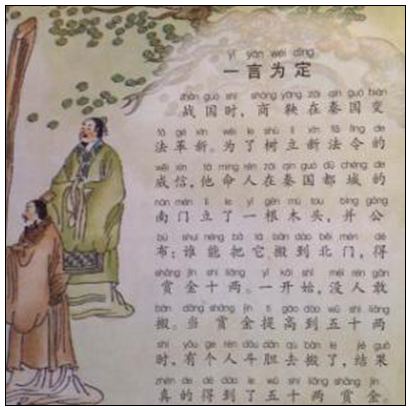 yī yán wéi dìng
一言为定
zhàn guó shí shāng yāng zài qín guó biàn
战国时，商鞅在秦国变
fǎ gé xīn wèi le shù lì xīn fǎ lìng de
法革新。为了树立新法令的
wēi xìn tā mìng rén zài qín guó dū chéng de
威信，他命人在秦国都城的
nán mén lì le yì gēn mù tou bìng gōng
南门立了一根木头，并公
bù shuí néng bǎ tā bān dào běi mén dé
布：谁能把它搬到北门，得
shǎng jīn shí liǎng yì kāi shǐ méi rén gǎn
赏金十两。一开始，没人敢
bān dāng shǎng jīn tí gāo dào wǔ shí liǎng
搬。当赏金提高到五十两
shí yǒu gè rén dǒu dǎn qù bān le jié guǒ
时，有个人斗胆去搬了，结果
zhēn de dé dào le wǔ shí liǎng shǎng jīn
真的得到了五十两赏金。